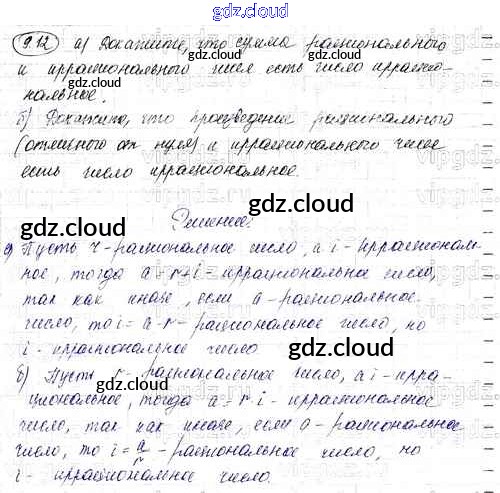 gdz.cloud
9.12 а) Докажите, что сумма рационального
и иррационального чисел есть число иррацио-
нальное.
б) Докажите, что произведение рационального
(отличного от нуля) и иррационального чисел
есть число иррациональное.
gdz.cloud
Решение:
gdz.cloud
а) Пусть r - рациональное число, а i - иррациональ-
ное, тогда a = r + i - иррациональное число,
так как иначе, если a - рациональное
число, то i = a - r - рациональное число, но
i - иррациональное число.
gdz.cloud
б) Пусть r - рациональное число, а i - ирра-
циональное, тогда a = r i - иррациональное
число, так как иначе, если a - рациональное
число, то i = a/r - рациональное число, но
i - иррациональное число.
gdz.cloud